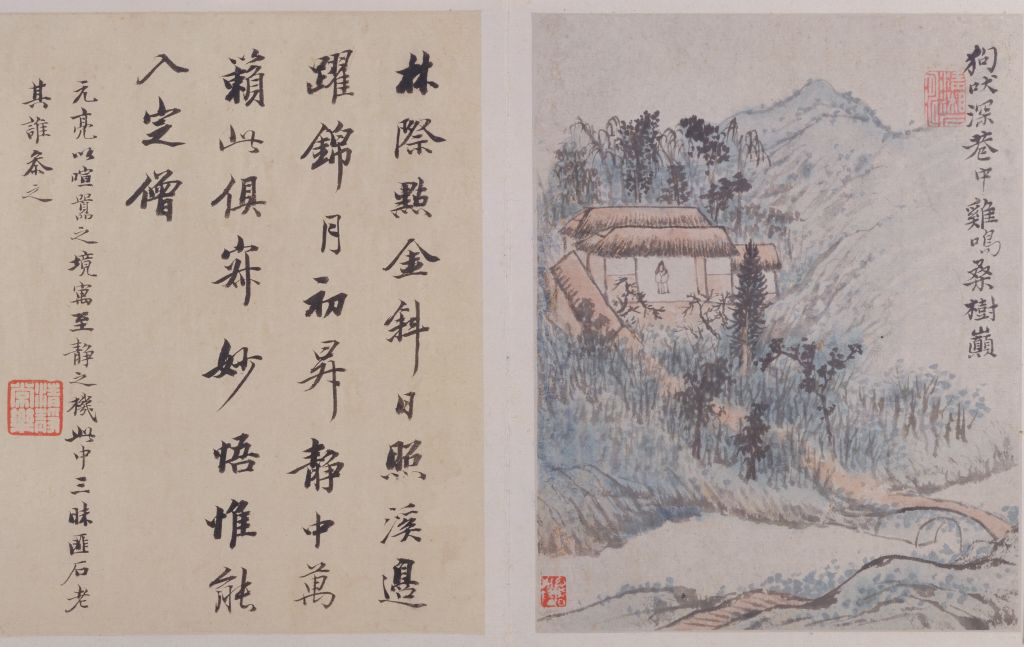 狗吠深巷中雞鳴桑樹巔
林際點金斜日照溪邉
躍錦月初昇靜中萬
籟此俱寂妙悟惟能
入定僧
元亮以喧囂之境寓至靜之機此中三昧匪石老
其誰叅之